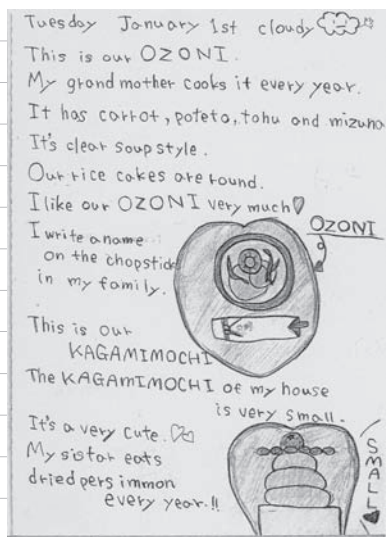 Tuesday January 1st cloudy
This is our OZONI.
My grand mother cooks it every year.
It has carrot, poteto, tohu and mizuna
It's clear soup style.
Our rice cakes are round.
I like our OZONI very much
OZONI
I write a name
on the chopstick
in my family.
This is our
KAGAMIMOCHI
The KAGAMIMOCHI of my house
is very small.
It's a very cute.
My sistar eats
dried pers immon
every year.!!
SMALL